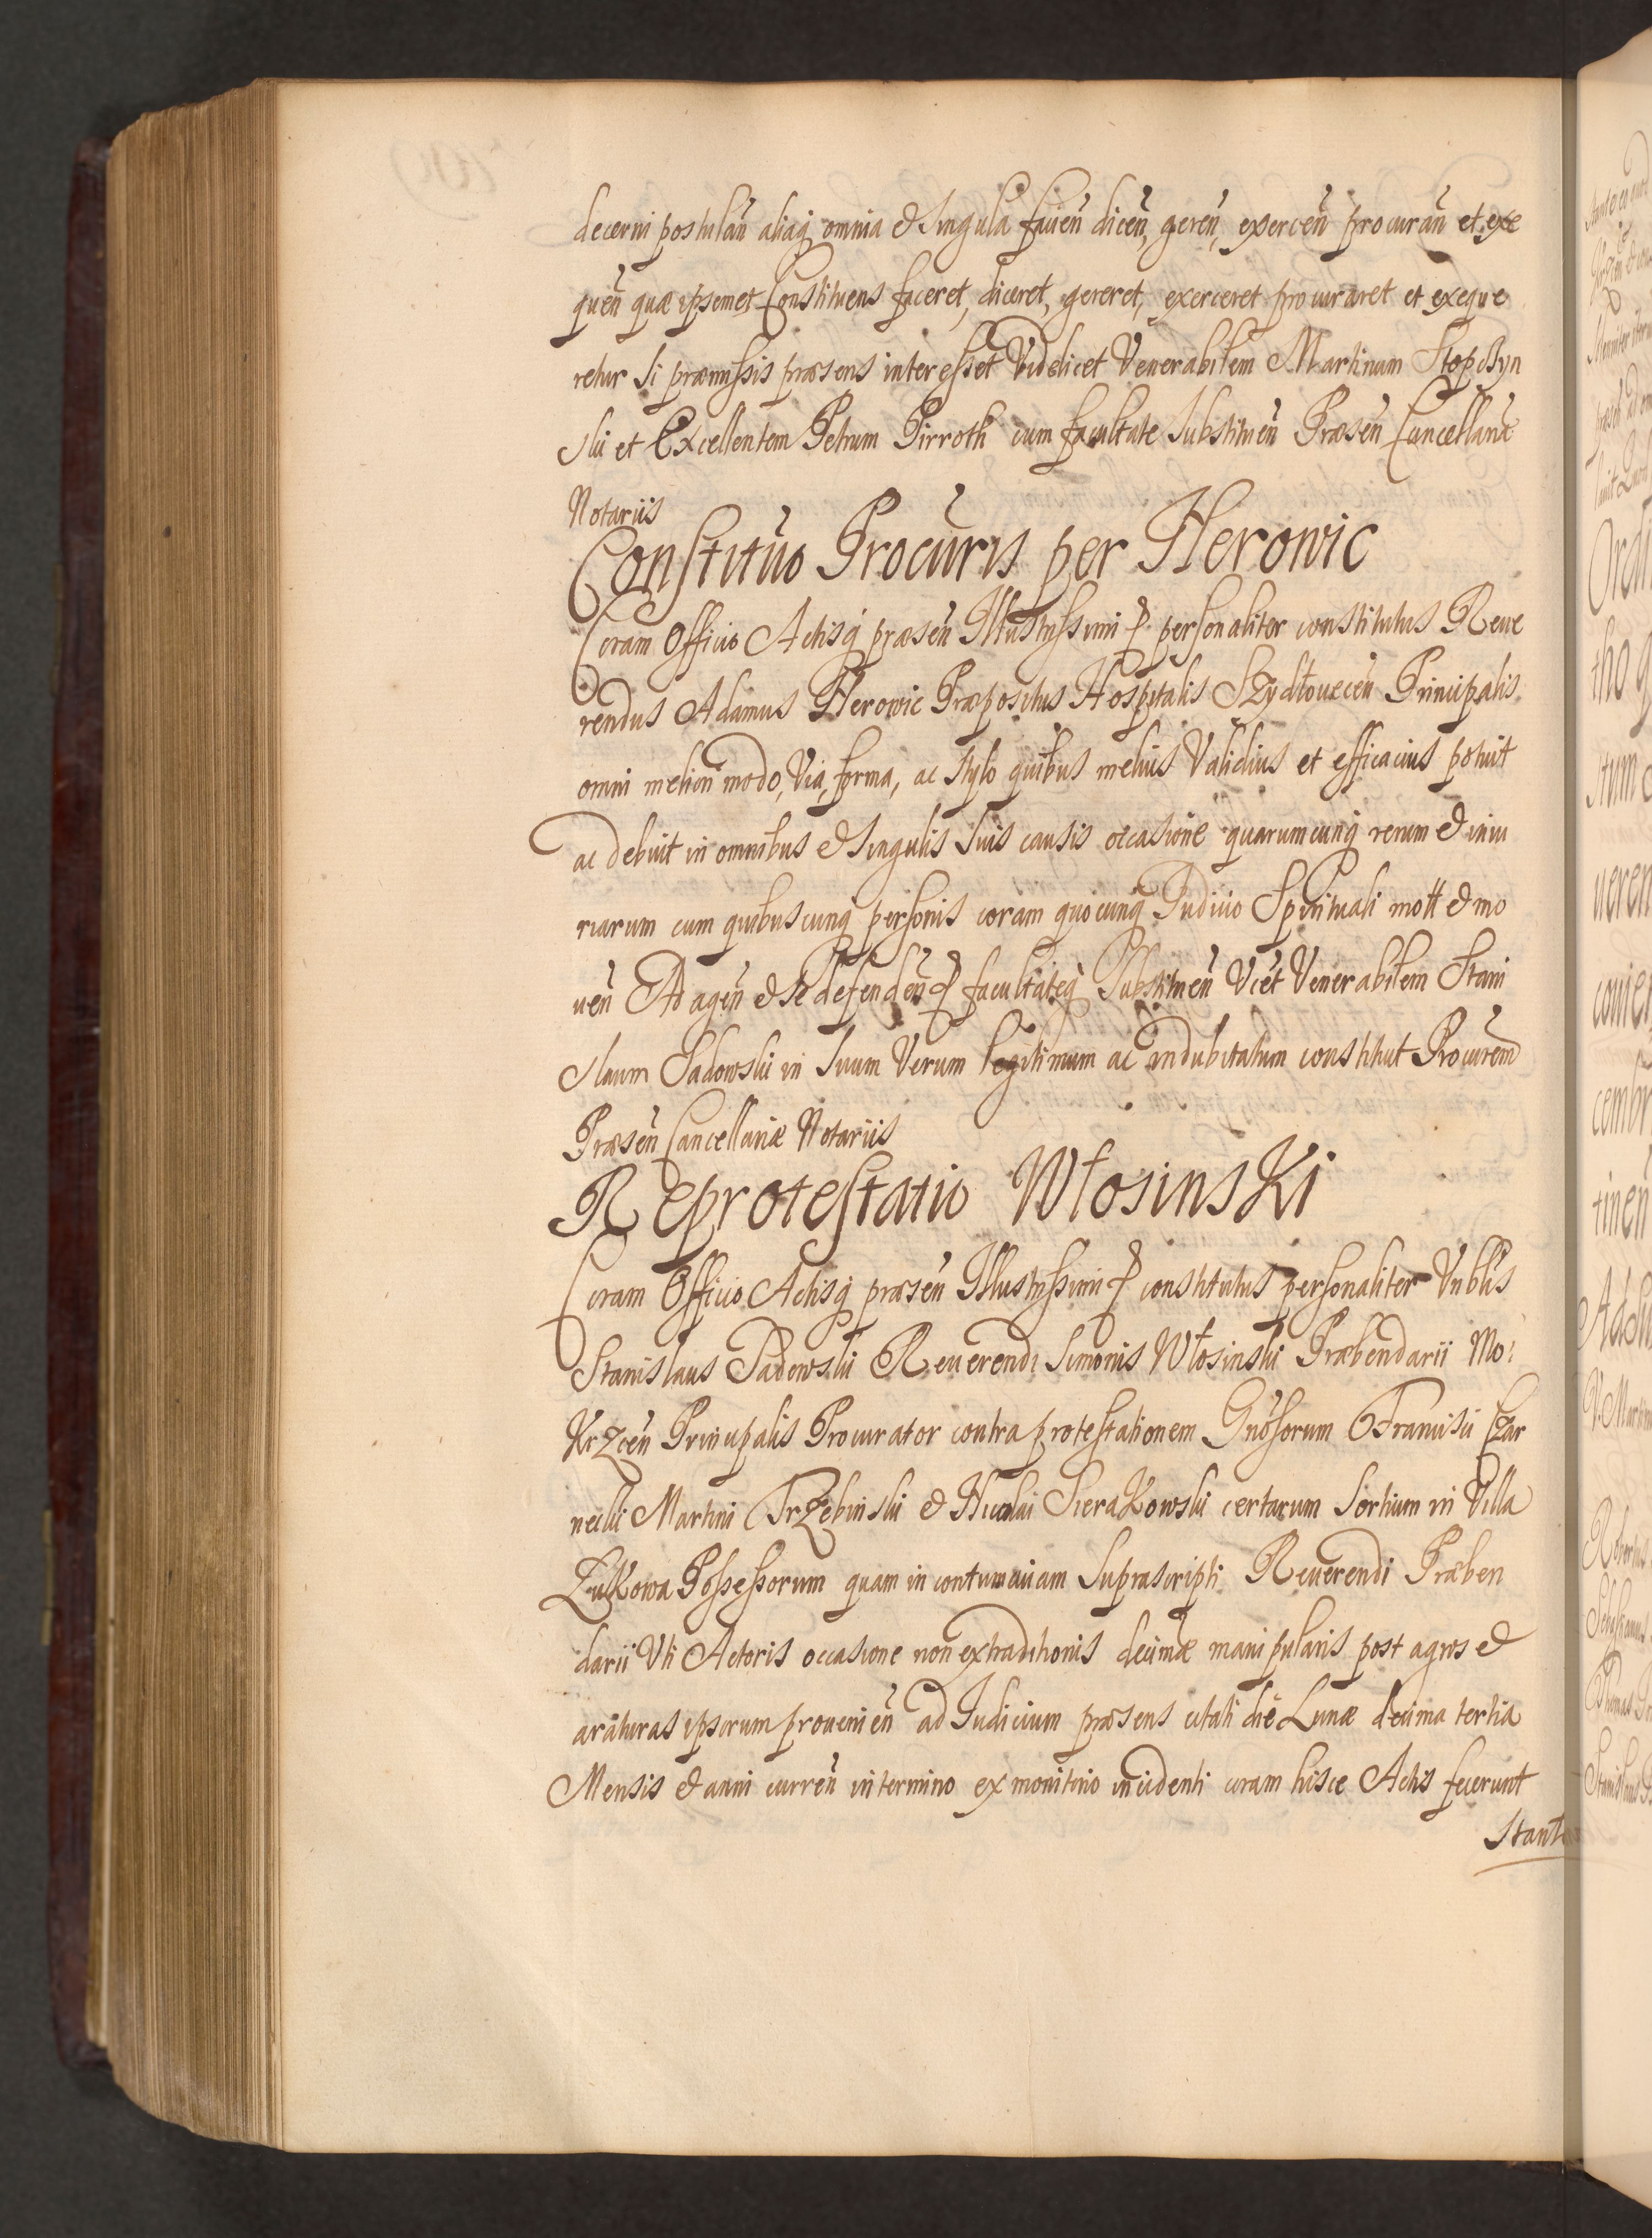 decerni postulan̄ aliaq̨ omnia & singula facien̄ dicen̄, geren̄, exercen̄ procuran̄ et exe
quen̄ quæ ipsemet Constituens faceret, diceret, gereret, exerceret procuraret et exeque
retur si præmissis præsens interesset Videlicet Venerabilem Martinum Stopczyn
ski et Excellentem Petrum Pirroth cum facultate substituen̄ Præsen̄ Cancellariæ
Notariis
Constitūo Procūris per Herowic
Coram Officio Actisq̨ præsen̄ Illustrissimi & personaliter constitutus Reve
rendus Adamus Herowic Præpositus Hospitalis Szydłovecen̄ Principalis
omni meliori modo, Via, forma, ac stylo quibus melius Validius et efficacius potuit
ac debuit in omnibus & singulis suis causis occasione quarumcunq̨ rerum & iniu
riarum cum quibuscunq̨ personis coram quocunq̨ Judicio Spirituali mott & mo
ven̄ Ad agen̄ & se defenden̄ & facultateq̨ Substituen̄ Vcet Venerabilem Stani
slaum Sadowski in suum Verum legitimum ac indubitatum constituit Procurem
Præsen̄ Cancellariæ Notariis
Reprotestatio Włosinski
Coram Officio Actisq̨ præsen̄ Illustrissimi & constitutus personaliter Vnblis
Stanislaus Sadowski Reverendi Simonis Włosinski Præbendarii Mo:
Krzcen̄ Principalis Procurator contra protestationem Gnosorum Francisci Czar
necki Martini Trzebinski & Nicolai Sierakowski certarum Sortium in Villa
Zukowa Possessorum quam in contumaciam suprascripti Reverendi Præben
darii Vti Actoris occasione non extraditionis decimæ manipularis post agros &
araturas ipsorum provenien̄ ad Judicium præsens citati die Lunæ decima tertia
Mensis & anni curren̄ in termino ex monitorio incidenti coram hisce Actis fecerunt
Stante